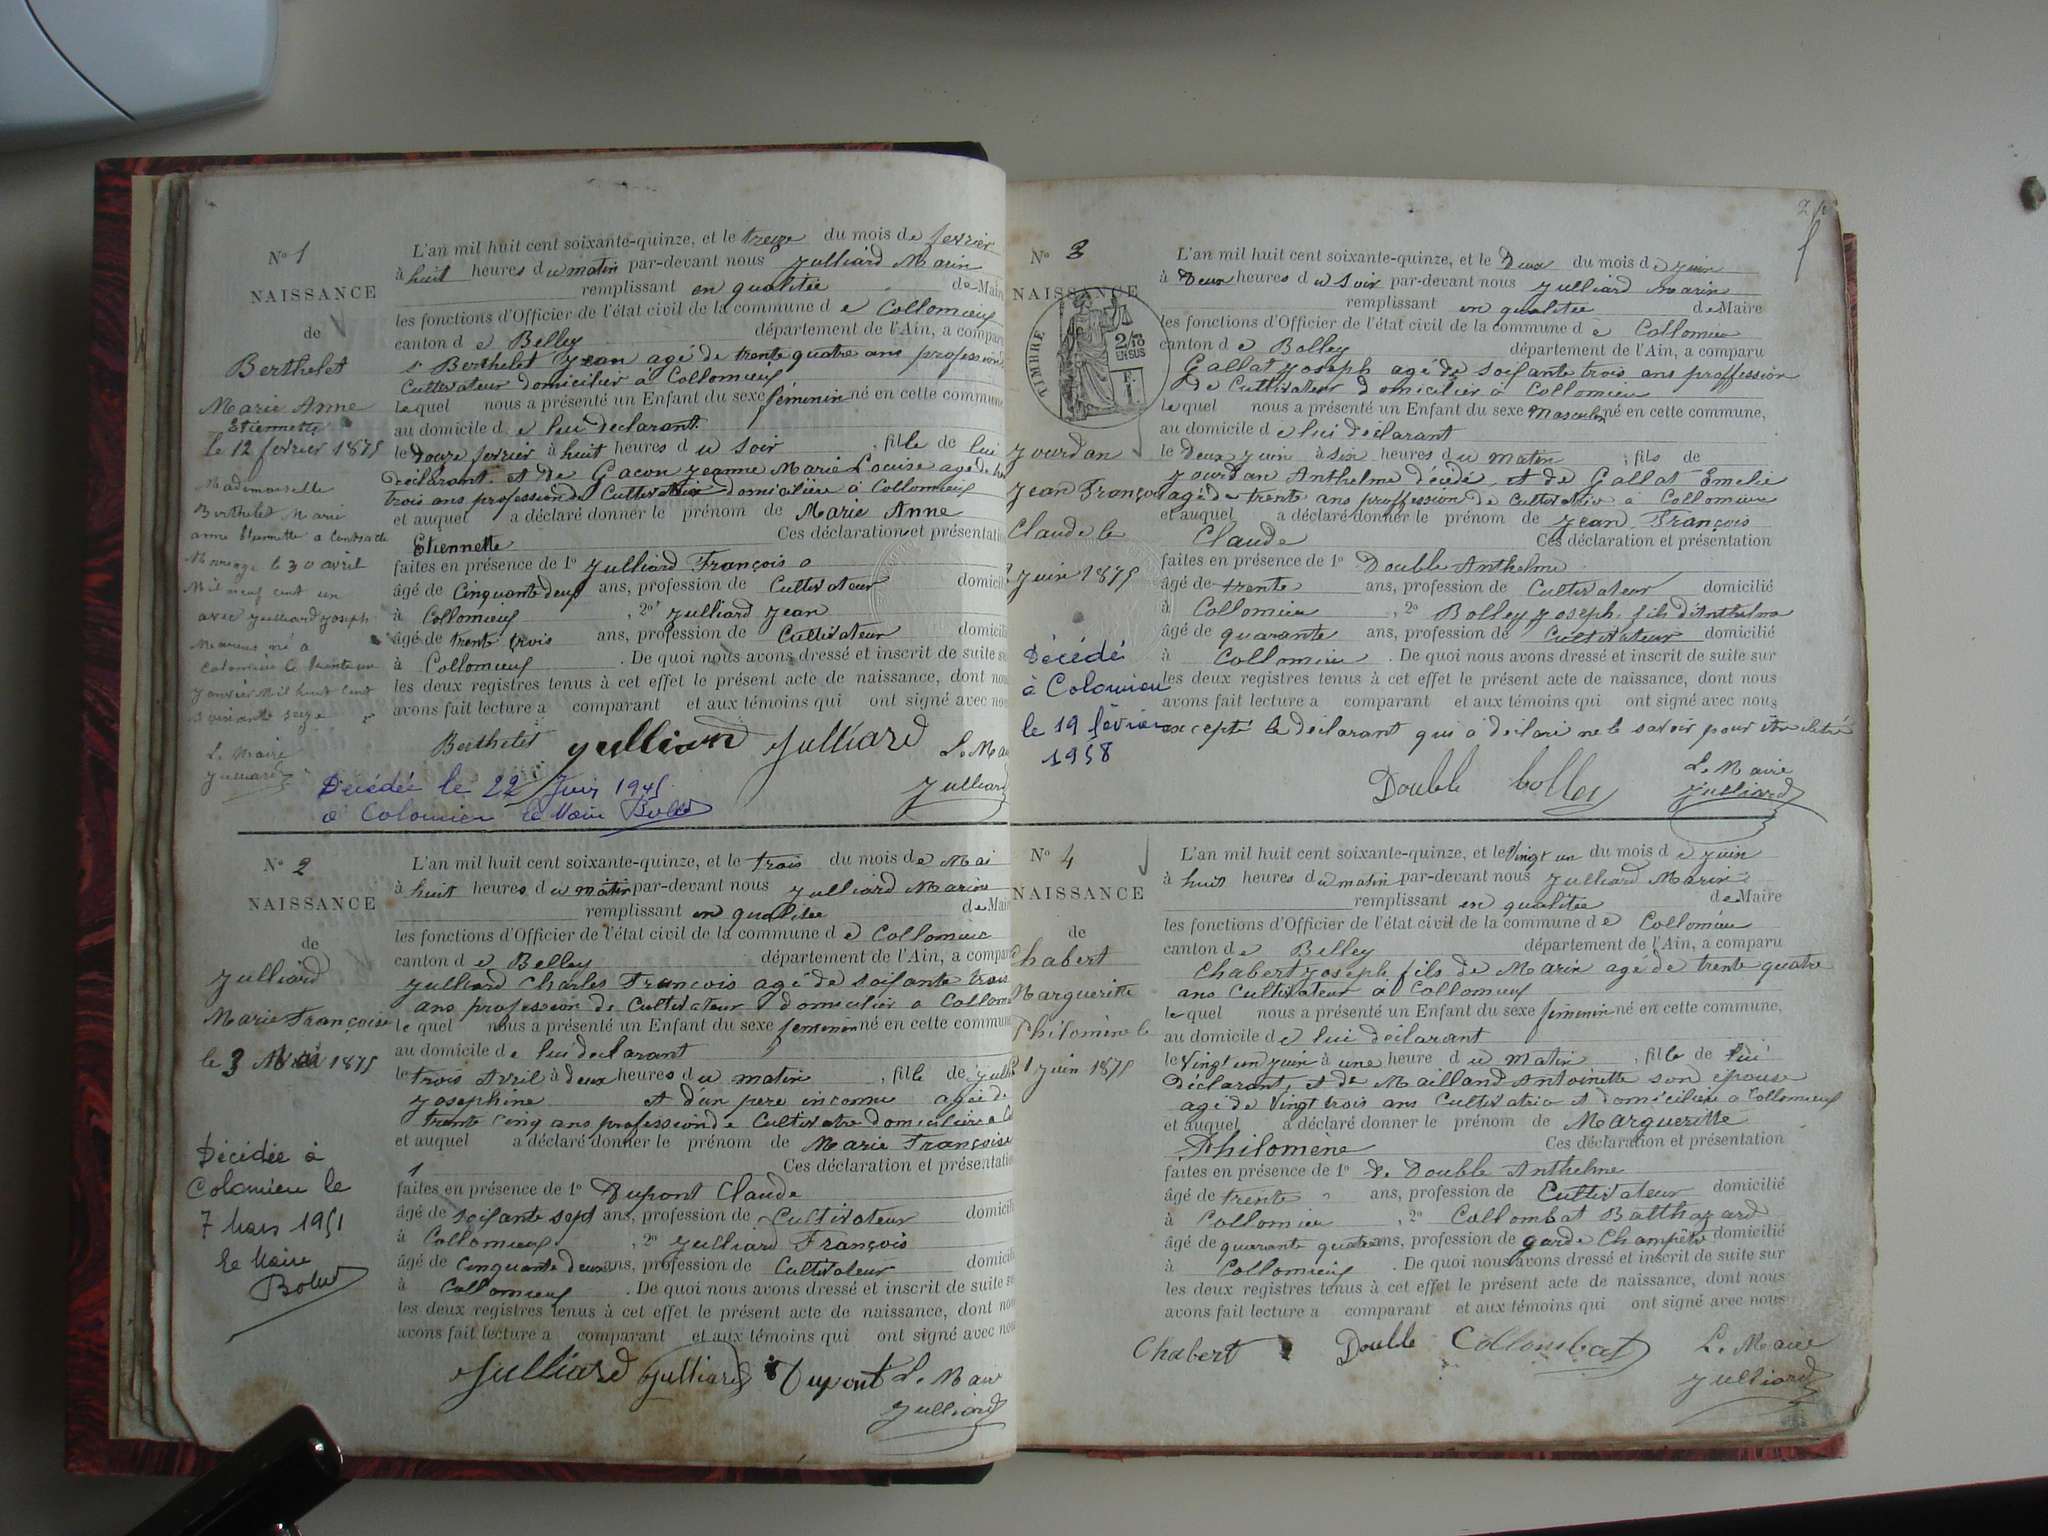 No 1
NAISSANCE
de
Berthelet
Marie Anne
Etiennette
le 12 fevrier 1875
Mademoiselle
Berthelet Marie
anne Etiennette a contracté
Mariage le 30 avril
Mil neuf cent un
avec Julliard Joseph
Marius né à
Colomieu le trente un
Janvier Mil huit cent
Soixante seize
Le Maire
Julliard
L'an mil huit cent soixante-quinze, et le treize du mois de fevrier
à huit heures du matin par-devant nous Julliard Marin
remplissant en qualitée de Maire
les fonctions d'Officier de l'état civil de la commune de Collomieux
canton de Belley département de l'Ain, a comparu
Berthelet Jean agé de trente quatre ans profession de
Cultivateur domicilier à Collomieux
lequel nous a présenté un Enfant du sexe féminin né en cette commune
au domicile de lui declarant
le douze fevrier à huit heures du soir , fille de lui
déclarant et de Gacon Jeanne Marie Louise age de
trois ans profession de Cultivatrice domicilière à Collomieux
et auquel a déclaré donner le prénom de Marie Anne
Etiennette Ces déclaration et présentation
faites en présence de 1o Julliard François
âgé de Cinquante deux ans, profession de Cultivateur domicilié
à Collomieux , 2o Julliard Jean
âgé de trente trois ans, profession de Cultivateur domicilié
à Collomieux . De quoi nous avons dressé et inscrit de suite sur
les deux registres tenus à cet effet le présent acte de naissance, dont nous
avons fait lecture a comparant et aux témoins qui ont signé avec nous
Berthelet Julliard Julliard Le Maire
Julliard
Décédée le 22 Juin 1945
à Colomieu le Maire
No 2
NAISSANCE
de
Julliard
Marie Françoise
le 3 Mai 1875
Décédée à
Colomieu le
7 Mars 1951
Le Maire
L'an mil huit cent soixante-quinze, et le trois du mois de Mai
à huit heures du matin par-devant nous Julliard Marin
remplissant en qualitée de Maire
les fonctions d'Officier de l'état civil de la commune de Collomieux
canton de Belley département de l'Ain, a comparu
Julliard Charles François agé de soixante trois
ans profession de Cultivateur domicilier a Collomieux
lequel nous a présenté un Enfant du sexe féminin né en cette commune
au domicile de lui declarant
le trois Avril à deux heures du matin , fille de Julliard
Josephine et d'un pere inconnu agée de
trente cinq ans profession de Cultivatre domicilière a
et auquel a déclaré donner le prénom de Marie Françoise
Ces déclaration et présentation
faites en présence de 1o Dupont Claude
âgé de soixante sept ans, profession de Cultivateur domicilié
à Collomieux , 2o Julliard François
âgé de Cinquante deux ans, profession de Cultivateur domicilié
à Collomieux . De quoi nous avons dressé et inscrit de suite sur
les deux registres tenus à cet effet le présent acte de naissance, dont nous
avons fait lecture a comparant et aux témoins qui ont signé avec nous
Julliard Julliard Dupont Le Maire
Julliard
2
No 3
NAISSANCE
TIMBRE
2/10
EN SUS
Jourdan
Jean François
Claude le
2 juin 1875
Décédé
à Colomieu
le 19 février
1958
L'an mil huit cent soixante-quinze, et le Deux du mois de Juin
à Deux heures du soir par-devant nous Julliard Marin
remplissant en qualitée de Maire
les fonctions d'Officier de l'état civil de la commune de Collomieu
canton de Belley département de l'Ain, a comparu
Gallat Joseph agé de soixante trois ans proffession
de Cultivateur domicilier à Collomieu
lequel nous a présenté un Enfant du sexe Masculin né en cette commune,
au domicile de lui déclarant
le Deux Juin à six heures du matin , fils de
Jourdan Anthelme décédé et de Gallat Emelie
agé de trente ans proffession de Cultivatrie à Collomieu
et auquel a déclaré donner le prénom de Jean François
Claude Ces déclaration et présentation
faites en présence de 1o Double Anthelme
âgé de trente ans, profession de Cultivateur domicilié
à Collomieu , 2o Bolley Joseph fils d'Anthelme
âgé de quarante ans, profession de Cultivateur domicilié
à Collomieu . De quoi nous avons dressé et inscrit de suite sur
les deux registres tenus à cet effet le présent acte de naissance, dont nous
avons fait lecture a comparant et aux témoins qui ont signé avec nous
excepté le déclarant qui a déclaré ne le savoir pour être
Double Bolley Le Maire
Julliard
No 4
NAISSANCE
de
Chabert
Margueritte
Philomène le
21 juin 1875
L'an mil huit cent soixante-quinze, et le Vingt un du mois de Juin
à huit heures du matin par-devant nous Julliard Marin
remplissant en qualitée de Maire
les fonctions d'Officier de l'état civil de la commune de Collomieu
canton de Belley département de l'Ain, a comparu
Chabert Joseph fils de Marin agé de trente quatre
ans Cultivateur à Collomieux
lequel nous a présenté un Enfant du sexe féminin né en cette commune,
au domicile de lui déclarant
le Vingt un Juin à une heure du matin , fille de lui
Déclarant, et de Mailland Antoinette son épouse
agé de Vingt trois ans Cultivatrice et domicilière a Collomieux
et auquel a déclaré donner le prénom de Margueritte
Philomène Ces déclaration et présentation
faites en présence de 1o de Double Anthelme
âgé de trente ans, profession de Cultivateur domicilié
à Collomieu , 2o Collombat Balthazard
âgé de quarante quatre ans, profession de garde Champêtre domicilié
à Collomieux . De quoi nous avons dressé et inscrit de suite sur
les deux registres tenus à cet effet le présent acte de naissance, dont nous
avons fait lecture a comparant et aux témoins qui ont signé avec nous
Chabert Double Collombat Le Maire
Julliard